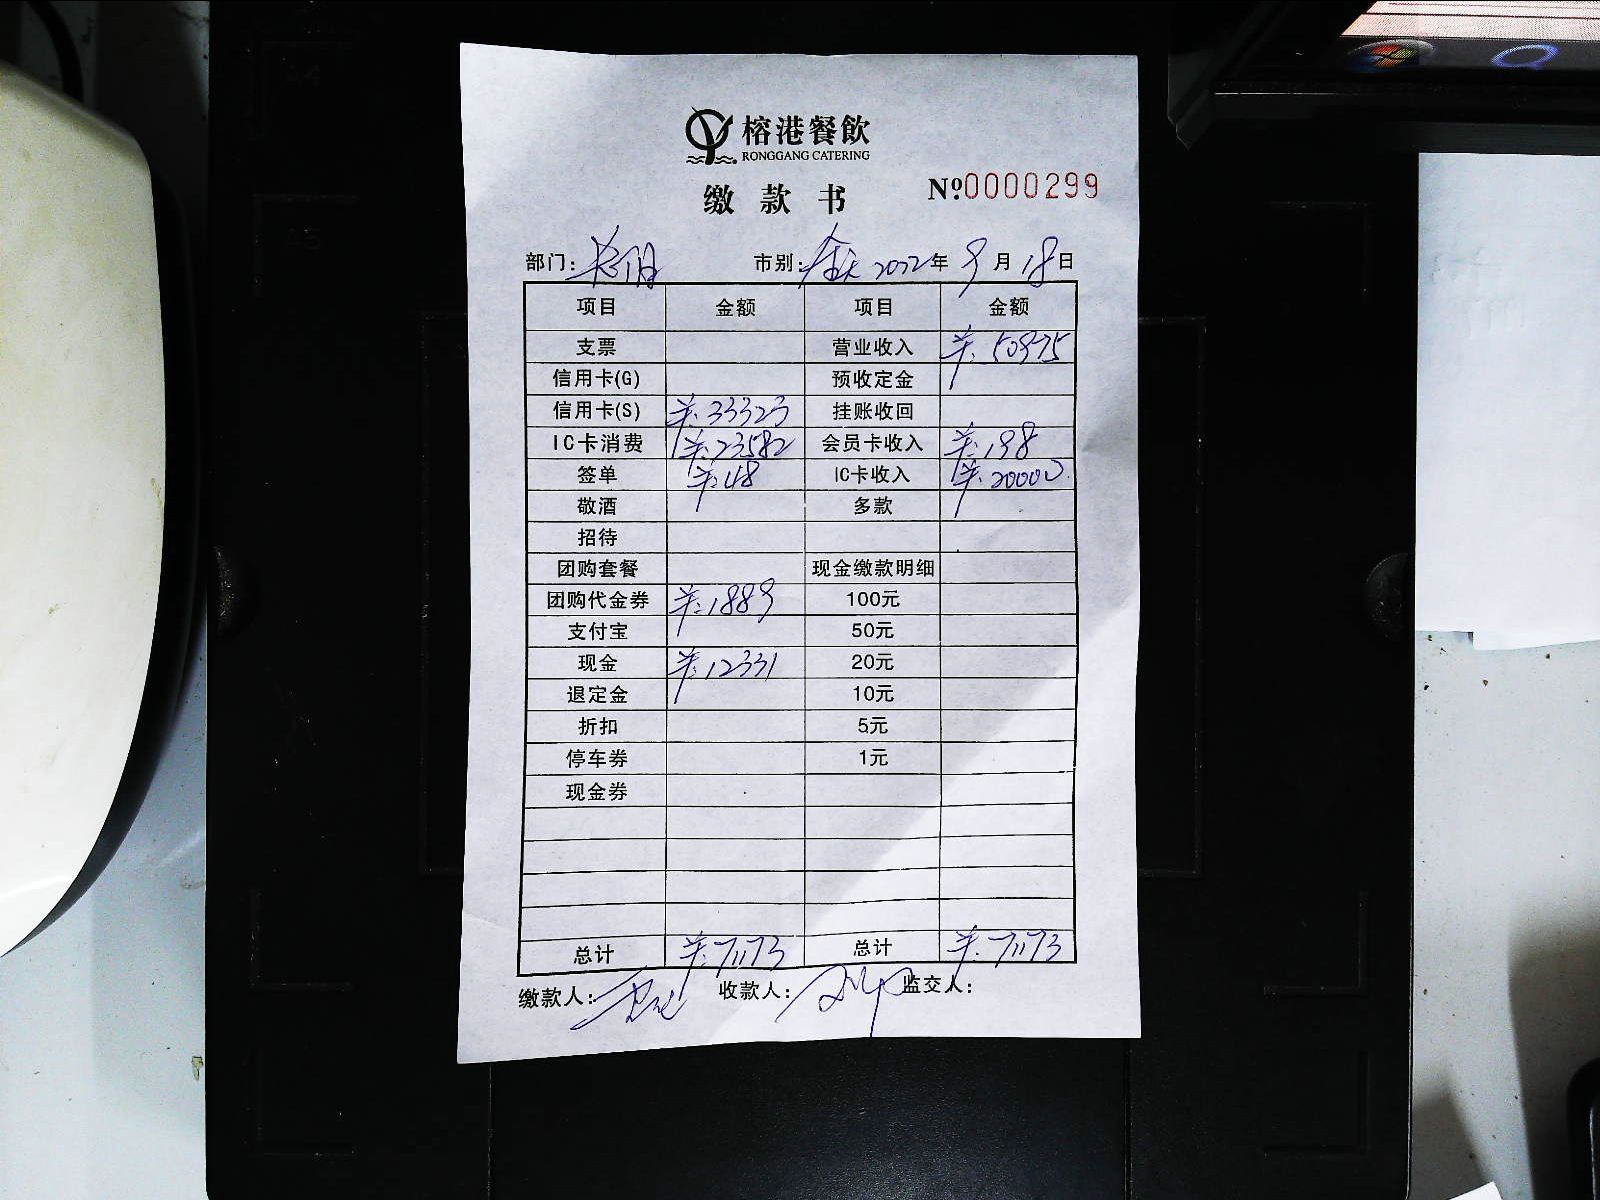 榕港餐飲
RONGGANG CATERING
缴款书 №0000299
部门: 市别:全天 2022年 9月 18日
项目 金额 项目 金额
支票 营业收入 ¥:50975
信用卡(G) 预收定金
信用卡(S) ¥:33323 挂账收回
IC卡消费 ¥:23582 会员卡收入 ¥:198
签单 ¥:48 IC卡收入 ¥:20000
敬酒 多款
招待
团购套餐 现金缴款明细
团购代金券 ¥:1889 100元
支付宝 50元
现金 ¥:12331 20元
退定金 10元
折扣 5元
停车券 1元
现金券
总计 ¥:71173 总计 ¥:71173
缴款人: 收款人: 监交人: